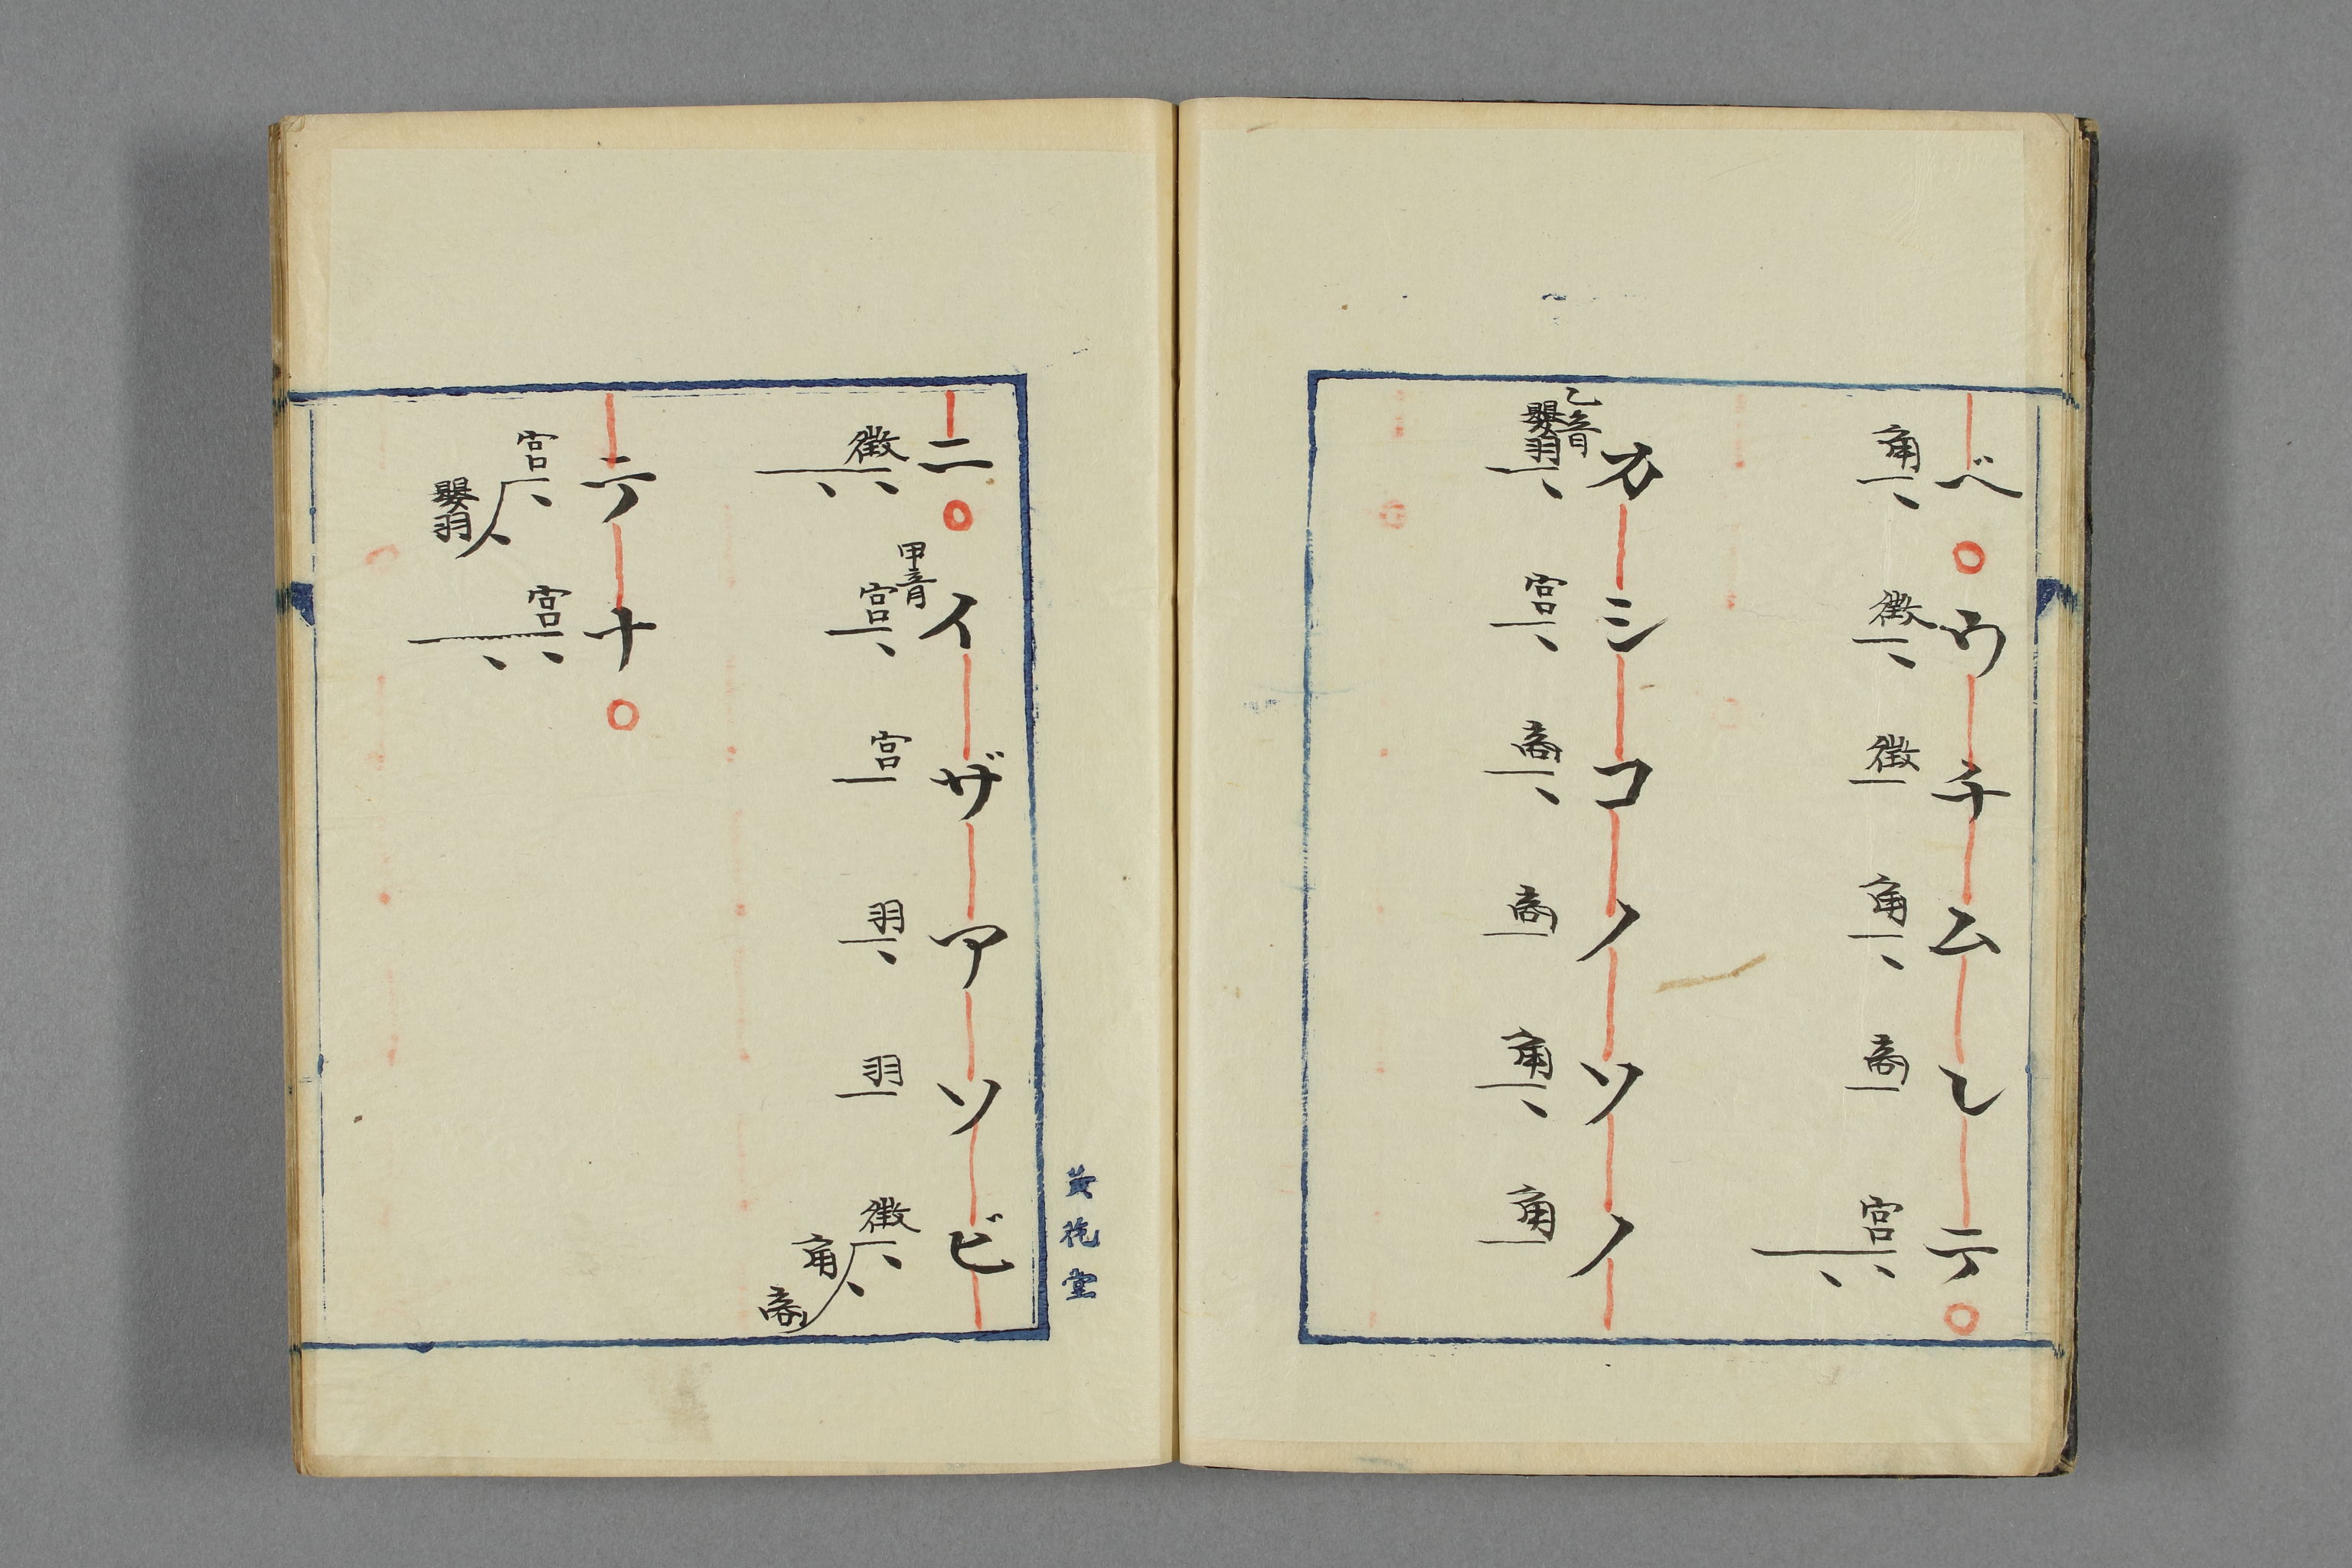 ベウチムレテ
角徴徴角商宮
カシコノソノ
乙音
嬰羽宮商商角角
ニイザアソビ
甲音
徴宮宮羽羽徴角商
テナ
宮嬰羽宮